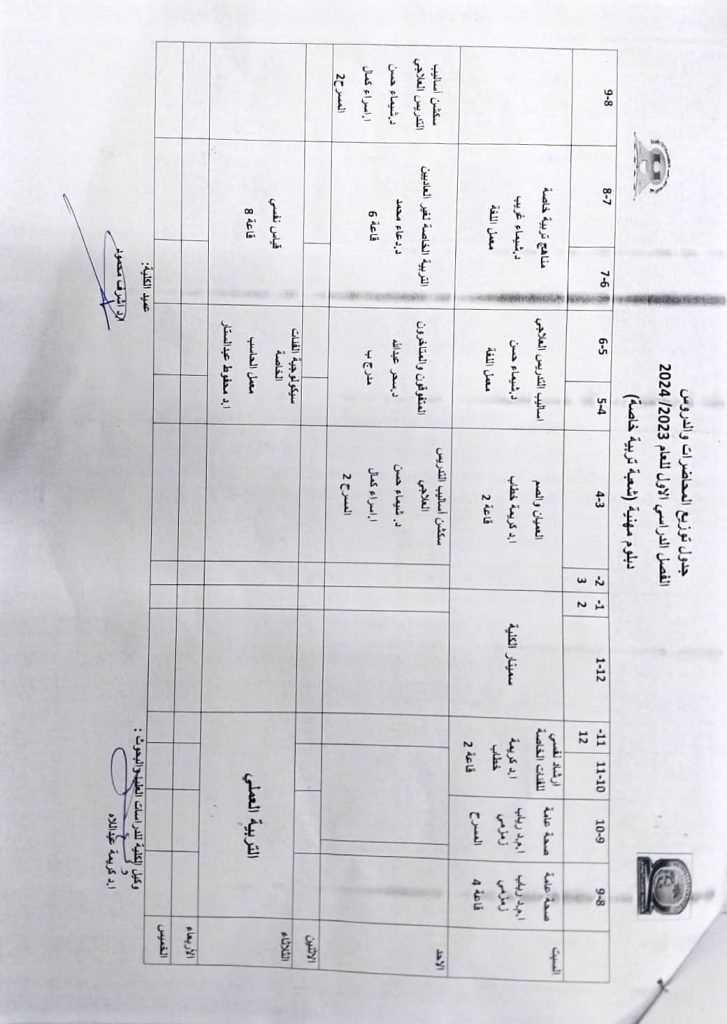 جدول توزيع المحاضرات والدروس
الفصل الدراسي الاول للعام 2023/ 2024
دبلوم مهنية (شعبة تربية خاصة)
9-8
10-9
11-10
11-
12
1-12
1-
2
2-
3
4-3
5-4
6-5
7-6
8-7
9-8
السبت
صحة عامة
ا.م.د رباب
زمزمي
قاعة 4
صحة عامة
ا.م.د رباب
زمزمي
المسرح
ارشاد نفسي
للفئات الخاصة
ا.د كريمة
خطاب
قاعة 2
سمينار الكلية
العميان والصم
ا.د كريمة خطاب
قاعة 2
اساليب التدريس العلاجي
د.شيماء حسن
معمل اللغة
مناهج تربية خاصة
د.شيماء غريب
معمل اللغة
الاحد
سكشن أساليب التدريس
العلاجي
د. شيماء حسن
ا.إسراء كمال
المسرح 2
المتفوقون والمتأخرون
د.سحر عبدالله
مدرج ب
التربية الخاصة لغير العاديين
د.دعاء محمد
قاعة 6
سكشن أساليب
التدريس العلاجي
د.شيماء حسن
ا.إسراء كمال
المسرح2
الاثنين
الثلاثاء
التربية العملي
سيكولوجية الفئات
الخاصة
معمل الحاسب
ا.د محفوظ عبدالستار
قياس نفسي
قاعة 8
الأربعاء
الخميس
وكيل الكلية للدراسات العليا والبحوث :
ا.د كريمة عبداللاه
عميد الكلية:
ا.د اشرف محمود